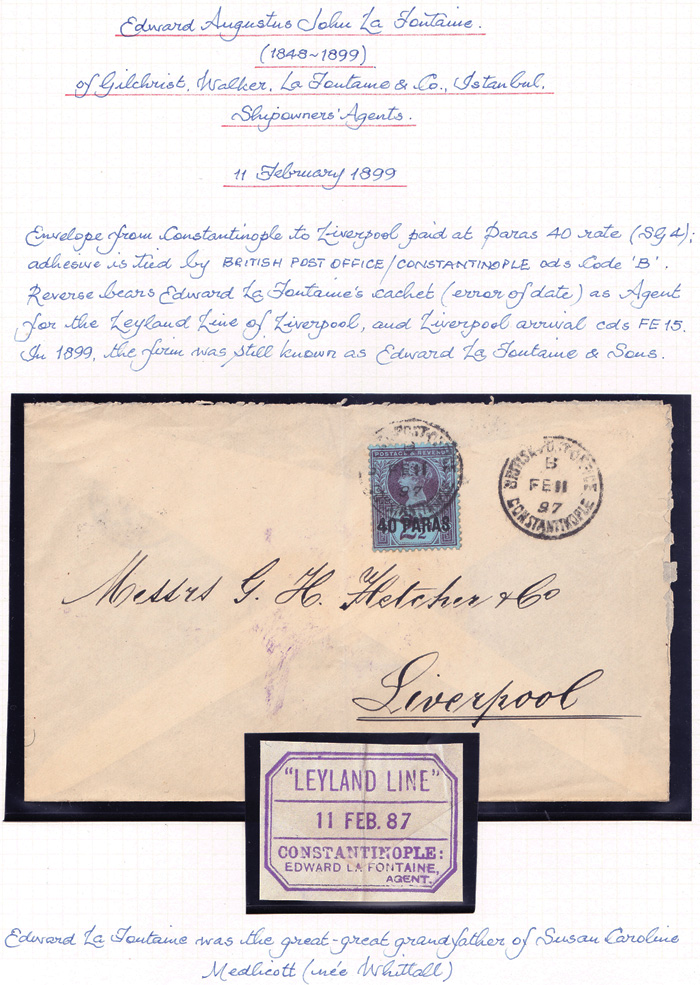 Edward Augustus John La Fontaine.
(1848~1899)
of Gilchrist, Walker, La Fontaine & Co., Istanbul.
Shipowners' Agents.
11 February 1899
Envelope from Constantinople to Liverpool paid at Paras 40 rate (SG 4);
adhesive is tied by BRITISH POST OFFICE/CONSTANTINOPLE cds Code 'B'.
Reverse bears Edward La Fontaine's cachet (error of date) as Agent
for the Leyland Line of Liverpool, and Liverpool arrival cds FE 15.
In 1899, the firm was still known as Edward La Fontaine & Sons.
POSTAGE & REVENUE
40 PARAS
2½
B
FE 11
97
BRITISH POST OFFICE
B
FE 11
97
CONSTANTINOPLE
Messrs G. H. Fletcher & Co
Liverpool
"LEYLAND LINE"
11 FEB. 87
CONSTANTINOPLE:
EDWARD LA FONTAINE,
AGENT.
Edward La Fontaine was the great-great grandfather of Susan Caroline
Medlicott (née Whittall)